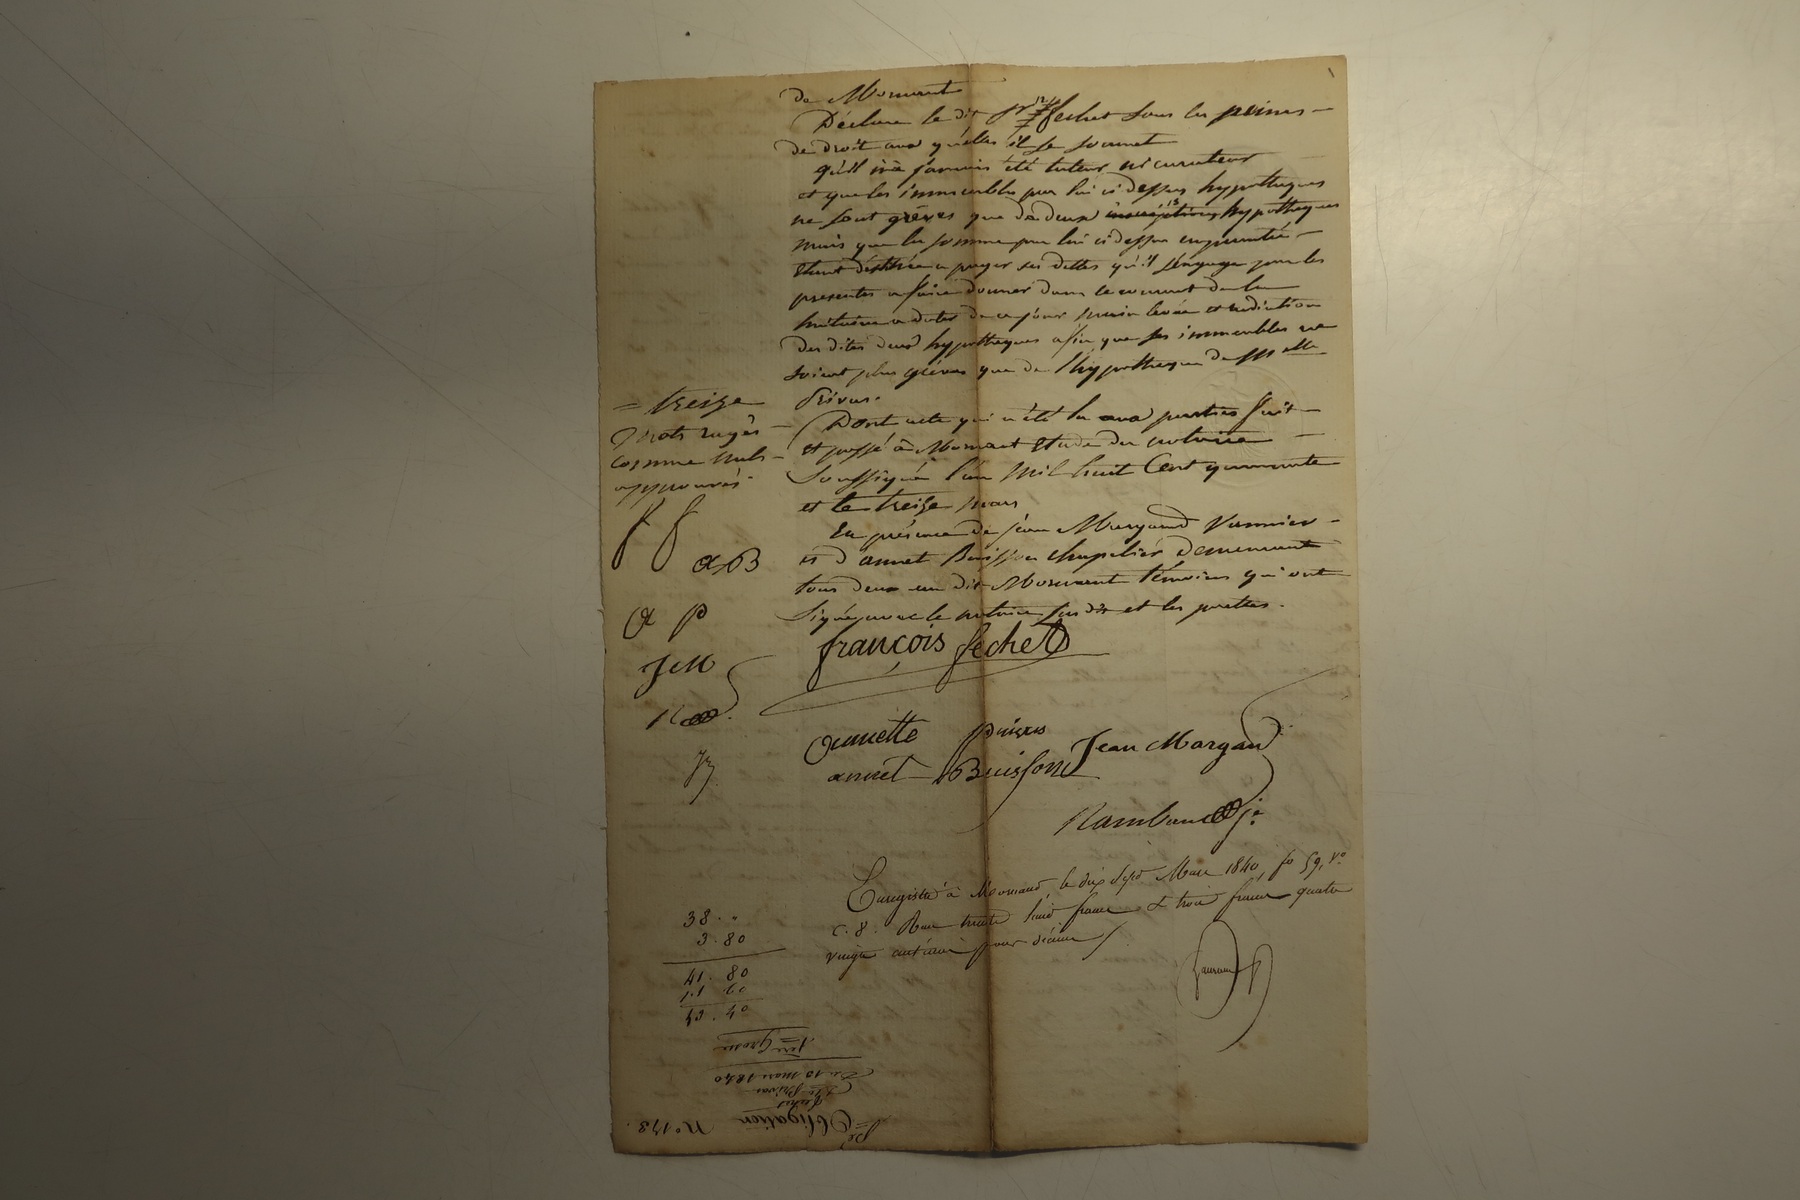 de Mornant
Déclare le dit sr fechet sous les peines
de droit aux quelles il se soumet
qu'il n'a jamais été tuteur ni curateur
et que les immeubles par lui ci dessus hypothequés
ne sont grèvés que de deux inscriptions hypotheques
mais que la somme par lui ci dessus empruntée
étant destinée a payer ses dettes qu'il s'engage par les
presentes a faire donner dans le courant de la
huitaine a dater de ce jour main levée et radiation
des dites deux hypotheques afin que ses immeubles ne
soient plus grèves que de l'hypotheque de Melle
Privas.
Dont acte qui a été lu aux parties fait
et passé à Mornant étude du notaire
Soussigné l'an Mil huit Cent quarante
et le treize mars
En présence de jean Margand Vannier
et d'annet Buisson chapelier demeurant
tous deux au dit Mornant témoins qui ont
signé avec le notaire sus dit et les parties.
= treize
mots rayés
comme nuls
approuvés.
ff
a B
a P
J M
R
françois fechet
privas
Jean Margand
annet Buisson
Rambaud je
Enregistré à Mornant, le dix sept Mars 1840, fo 59, Vo
c. 8. Reçu trente huit francs et trois francs quatre
vingts centimes pour décime
38 . "
3 . 80
41 . 80
1 . 60
43 . 40
No 173.
Obligation
fechet
Melle Privas
Du 13 mars 1840
1ère Grosse